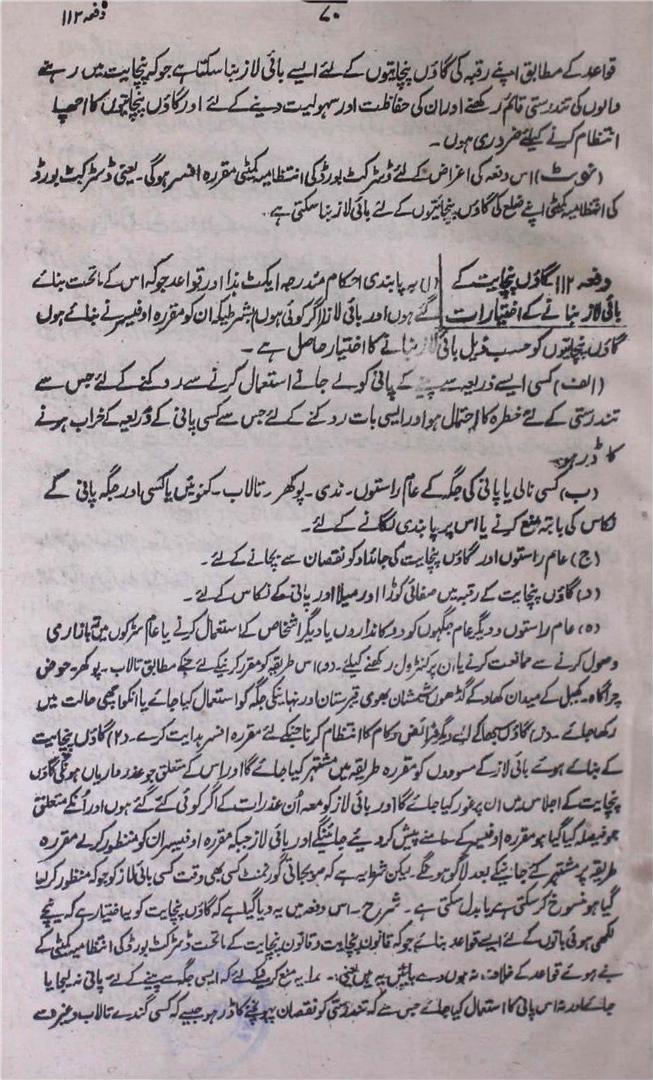 دفعہ ۱۱۲
۷۰
قواعد کے مطابق اپنے رقبہ کی گاؤں پنچایتوں کے لئے ایسے بائی لاز بنا سکتا ہے جو کہ پنچایت میں رہنے
والوں کی تندرستی قائم رکھنے اور ان کی حفاظت اور سہولیت دینے کے لئے اور گاؤں پنچایتوں کا اچھا
انتظام کرنے کیلئے ضروری ہوں۔
(نوٹ) اس دفعہ کی اغراض کے لئے ڈسٹرکٹ بورڈ کی انتظامیہ کمیٹی مقررہ افسر ہوگی۔ یعنی ڈسٹرکٹ بورڈ
کی انتظامیہ کمیٹی اپنے ضلع کی گاؤں پنچایتوں کے لئے بائی لاز بنا سکتی ہے۔
دفعہ ۱۱۲ گاؤں پنچایت کے (۱) بہ پابندی احکام مندرجہ ایکٹ ہذا اور قواعد جو کہ اس کے ماتحت بنائے
بائی لاز بنانے کے اختیارات گئے ہوں اور بائی لاز (اگر کوئی ہوں) بشرطیکہ ان کو مقررہ اوفیسر نے بنائے ہوں
گاؤں پنچایتوں کو حسب ذیل بائی لاز بنانے کا اختیار حاصل ہے۔
(الف) کسی ایسے ذریعہ سے پینے کے پانی کو لے جانے استعمال کرنے سے روکنے کے لئے جس سے
تندرستی کے لئے خطرہ کا احتمال ہو اور ایسی بات روکنے کے لئے جس سے کسی پانی کے ذریعہ کے خراب ہونے
کا ڈر ہو۔
(ب) کسی نالی یا پانی کی جگہ کے عام راستوں۔ ندی۔ پوکھر۔ تالاب۔ کنوئیں یا کسی اور جگہ پانی کے
نکاس کی بابتہ منع کرنے یا اس پر پابندی لگانے کے لئے۔
(ج) عام راستوں اور گاؤں پنچایت کی جائداد کو نقصان سے بچانے کے لئے۔
(د) گاؤں پنچایت کے رقبہ میں صفائی کوڑا اور میلا اور پانی کے نکاس کے لئے۔
(ہ) عام راستوں و دیگر عام جگہوں کو دوکانداروں یا دیگر اشخاص کے استعمال کرنے یا عام سڑکوں میں بازاری
وصول کرنے سے ممانعت کرنے یا ان پر کنٹرول رکھنے کیلئے۔ (و) اس طریقہ کو مقرر کرنیکے لئے جسکے مطابق تالاب۔ پوکھر۔ حوض
چراگاہ۔ کھیل کے میدان کھاد کے گڈھوں شمشان بھومی قبرستان اور نہانیکی جگہ کو استعمال کیا جائے یا انکو اچھی حالت میں
رکھا جائے۔ (ز) گاؤں سبھا کے ایسے دیگر فرائض و کام کا انتظام کرنا جسکے لئے مقررہ افسر ہدایت کرے۔ (۲) گاؤں پنچایت
کے بنائے ہوئے بائی لاز کے مسودوں کو مقررہ طریقہ میں مشتہر کیا جائے گا اور اس کے متعلق جو عذرداریاں ہونگی گاؤں
پنچایت کے اجلاس میں ان پر غور کیا جائے گا اور بائی لاز کو معہ اُن عذرات کے اگر کوئی کئے گئے ہوں اور اُنکے متعلق
جو فیصلہ کیا گیا ہو مقررہ اوفیسر کے سامنے پیش کر دیئے جائینگے اور بائی لاز جبکہ مقررہ اوفیسر ان کو منظور کرلے مقررہ
طریقہ پر مشتہر کئے جانیکے بعد لاگو ہونگے۔ لیکن شرط یہ ہے کہ صوبجاتی گورنمنٹ کسی بھی وقت کسی بائی لاز کو جو کہ منظور کر لیا
گیا ہو منسوخ کر سکتی ہے یا بدل سکتی ہے۔ شرح۔ اس دفعہ میں یہ دیا گیا ہے کہ گاؤں پنچایت کو یہ اختیار ہے کہ نیچے
لکھی ہوئی باتوں کے لئے ایسے قواعد بنائے جو کہ قانون پنچایت و قانون پنچایت کے ماتحت ڈسٹرکٹ بورڈ کی انتظامیہ کمیٹی کے
بنے ہوئے قواعد کے خلاف نہ ہوں دے باتیں یہ ہیں یعنی:۔ ۱۔ یہ منع کرنیکے لئے کہ ایسی جگہ سے پینے کے لئے پانی نہ لیجایا
جائے اور نہ اس پانی کا استعمال کیا جائے جس سے کہ تندرستی کو نقصان پہونچنے کا ڈر ہو جیسے کہ کسی گندے تالاب وغیرہ سے